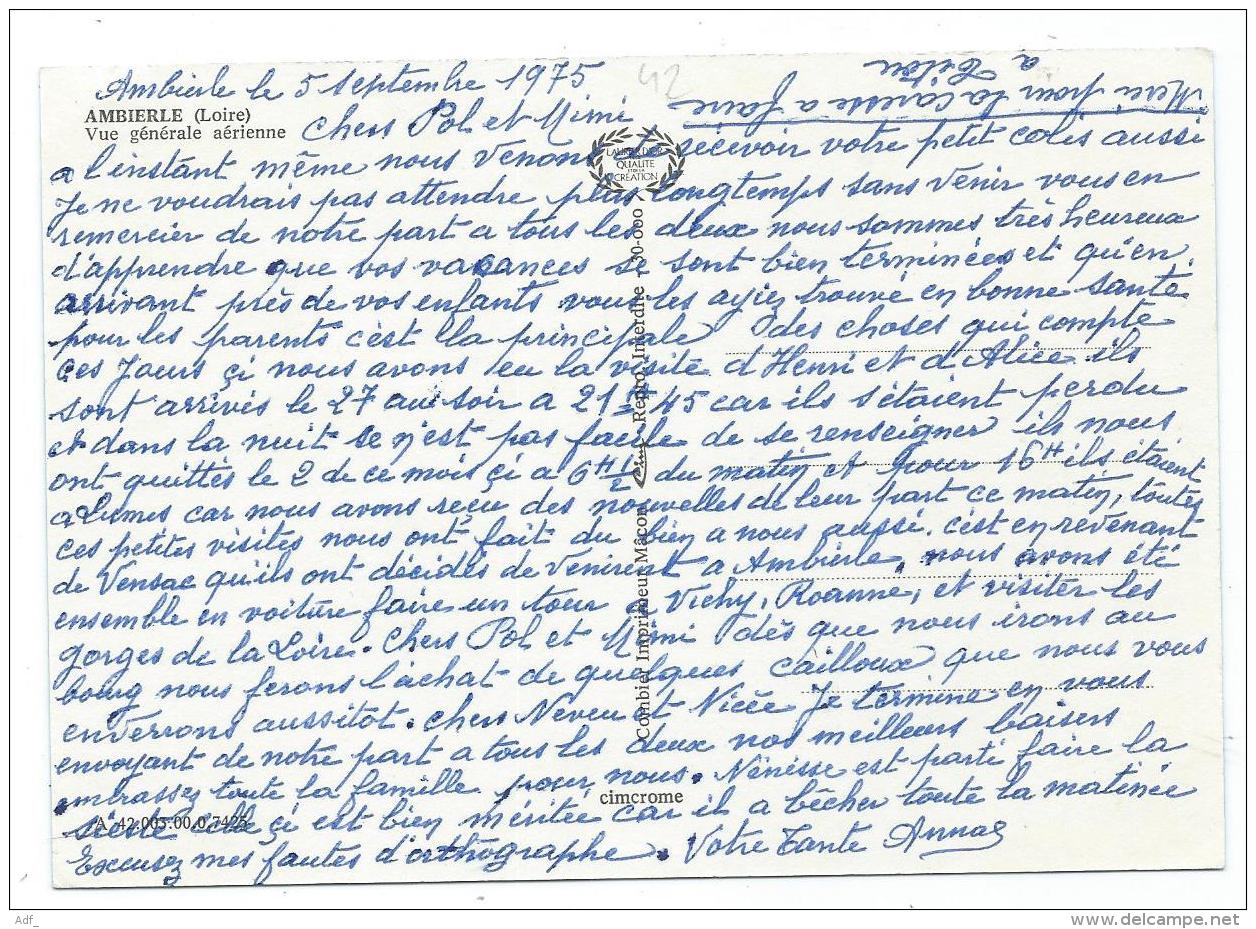 Ambierle le 5 septembre 1975
42
Merci pour la caresse a faire
a Titou
AMBIERLE (Loire)
Vue générale aérienne
Chers Pol et Mimi
LAURIER D'OR
QUALITÉ
ET DE LA
CRÉATION
a l'instant même nous venons de recevoir votre petit colis aussi
Je ne voudrais pas attendre plus longtemps sans venir vous en
remercier de notre part a tous les deux nous sommes très heureux
d'apprendre que vos vacances se sont bien terminées et qu'en
arrivant près de vos enfants vous les ayiez trouvé en bonne santé
pour les parents c'est lla principale des choses qui compte
ces Jours çi nous avons eu la visite d'Henri et d'Alice ils
sont arrivés le 27 au soir a 21 H 45 car ils s'étaient perdu
et dans la nuit se n'est pas facile de se renseigner ils nous
ont quittés le 2 de ce mois çi a 6 H 1/2 du matin et pour 16 H ils étaient
a Lumes car nous avons reçu des nouvelles de leur part ce matin, toutes
ces petites visites nous ont fait du bien a nous aussi. c'est en revenant
de Vensac qu'ils ont décidés de venirent a Ambierle, nous avons été
ensemble en voiture faire un tour a Vichy, Roanne, et visiter les
gorges de la Loire. Chers Pol et Mimi dès que nous irons au
bourg nous ferons l'achat de quelques cailloux que nous vous
enverrons aussitot. chers Neveu et Nièce Je termine en vous
envoyant de notre part a tous les deux nos meilleurs baisers
embrassez toute la famille pour nous. Nénèsse est parti faire la
cimcrome
sieste elle çi est bien méritée car il a bêcher toute la matinée
A 42.005.00.0.7425
Excusez mes fautes d'orthographe. Votre Tante Anna
Combier Imprimeur Mâcon Cim Repro. Interdite 30-600
Adf_
www.delcampe.net